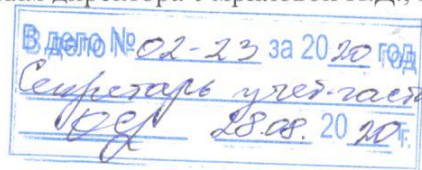 В дело № 02-23 за 2020 год
Секретарь учеб. части
28.08. 2020 г.